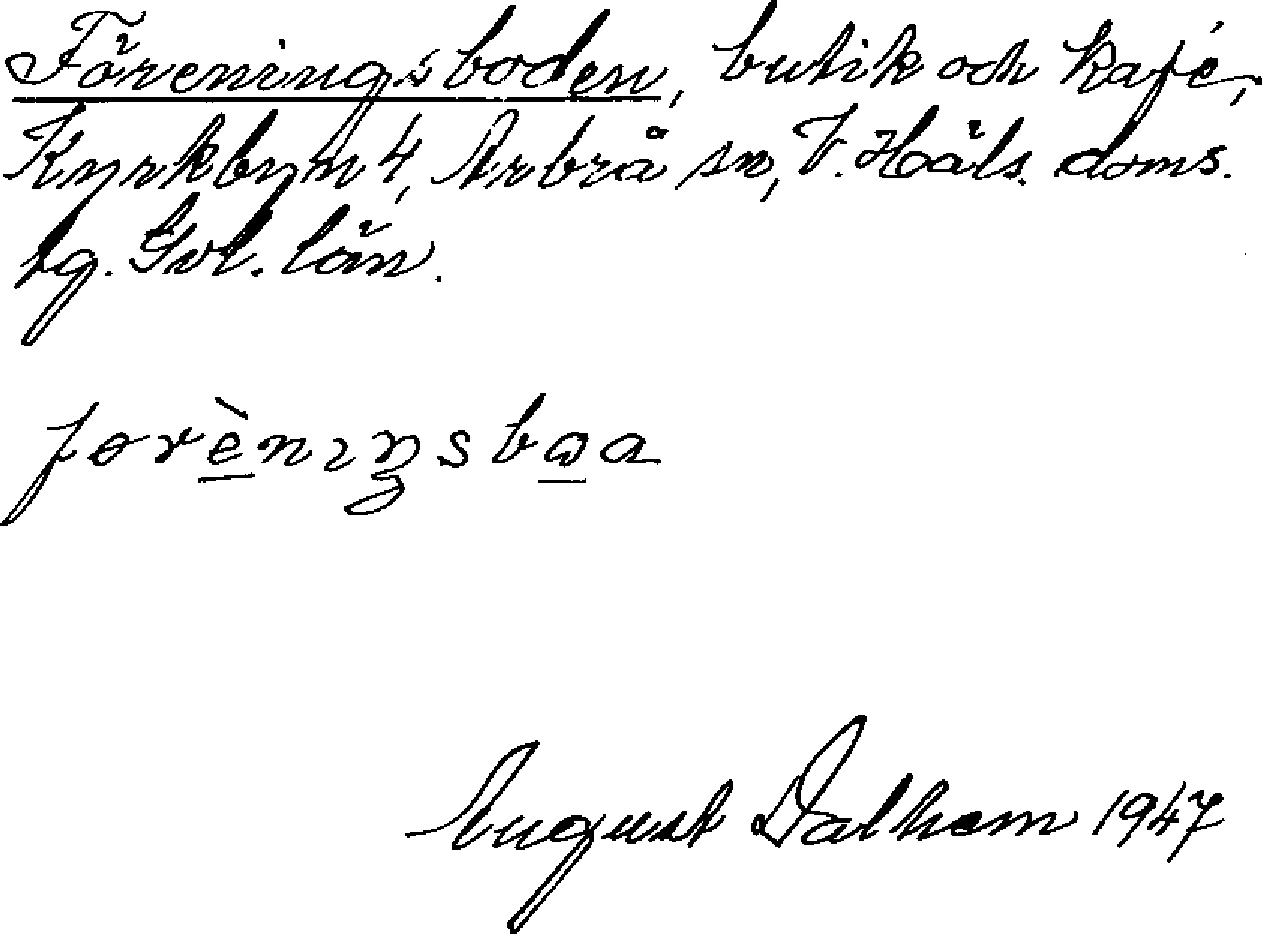 Föreningsboden, butik och kafé,
Kyrkbyn 4, Arbrå sn, V. Häls. doms.
tg. Gvl. län.
førènıŋsbɷa
August Dalhem 1947